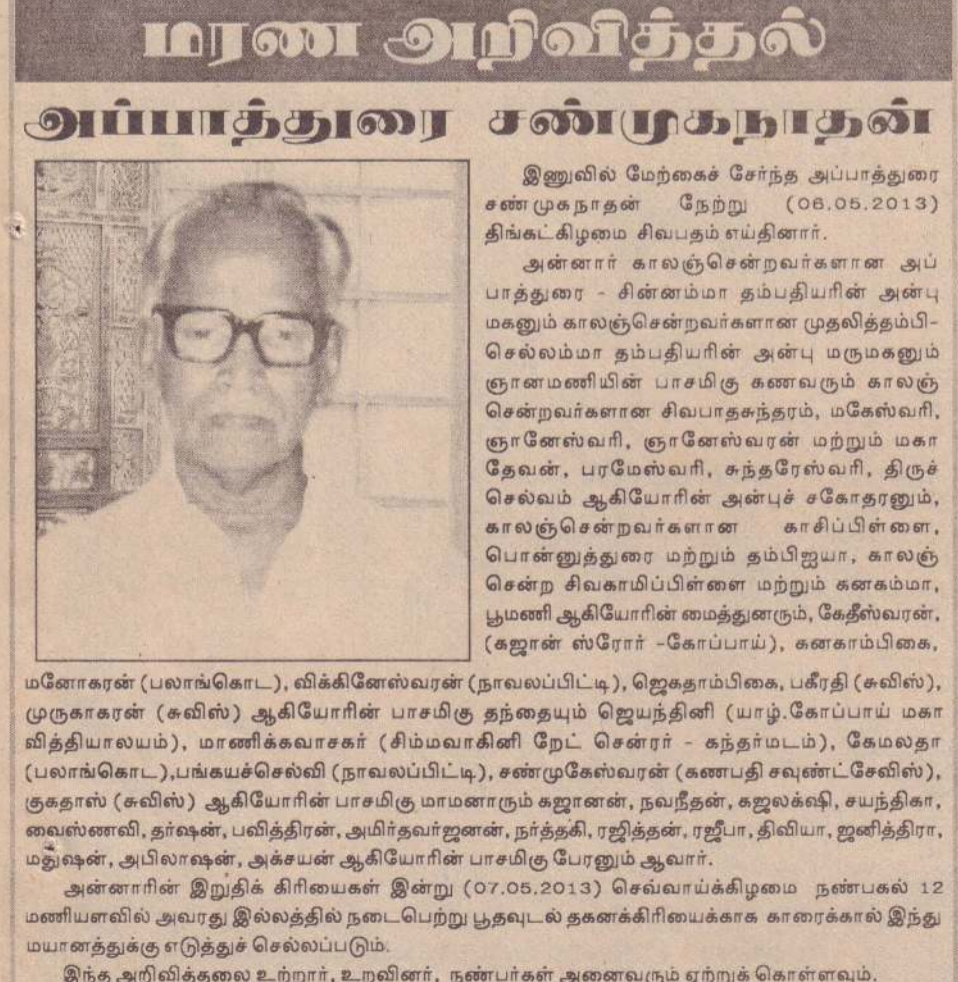 மரண அறிவித்தல்
அப்பாத்துரை சண்முகநாதன்
இணுவில் மேற்கைச் சேர்ந்த அப்பாத்துரை
சண்முகநாதன் நேற்று (06.05.2013)
திங்கட்கிழமை சிவபதம் எய்தினார்.
அன்னார் காலஞ்சென்றவர்களான அப்
பாத்துரை - சின்னம்மா தம்பதியரின் அன்பு
மகனும் காலஞ்சென்றவர்களான முதலித்தம்பி-
செல்லம்மா தம்பதியரின் அன்பு மருமகனும்
ஞானமணியின் பாசமிகு கணவரும் காலஞ்
சென்றவர்களான சிவபாதசுந்தரம், மகேஸ்வரி,
ஞானேஸ்வரி, ஞானேஸ்வரன் மற்றும் மகா
தேவன், பரமேஸ்வரி, சுந்தரேஸ்வரி, திருச்
செல்வம் ஆகியோரின் அன்புச் சகோதரனும்,
காலஞ்சென்றவர்களான காசிப்பிள்ளை,
பொன்னுத்துரை மற்றும் தம்பிஐயா, காலஞ்
சென்ற சிவகாமிப்பிள்ளை மற்றும் கனகம்மா,
பூமணி ஆகியோரின் மைத்துனரும், கேதீஸ்வரன்,
(கஜான் ஸ்ரோர் -கோப்பாய்), கனகாம்பிகை,
மனோகரன் (பலாங்கொட), விக்கினேஸ்வரன் (நாவலப்பிட்டி), ஜெகதாம்பிகை, பகீரதி (சுவிஸ்),
முருகாகரன் (சுவிஸ்) ஆகியோரின் பாசமிகு தந்தையும் ஜெயந்தினி (யாழ்.கோப்பாய் மகா
வித்தியாலயம்), மாணிக்கவாசகர் (சிம்மவாகினி றேட் சென்ரர் - கந்தர்மடம்), கேமலதா
(பலாங்கொட),பங்கயச்செல்வி (நாவலப்பிட்டி), சண்முகேஸ்வரன் (கணபதி சவுண்ட்சேவிஸ்),
குகதாஸ் (சுவிஸ்) ஆகியோரின் பாசமிகு மாமனாரும் கஜானன், நவநீதன், கஜலக்ஷி, சயந்திகா,
வைஸ்ணவி, தர்ஷன், பவித்திரன், அமிர்தவர்ஜனன், நர்த்தகி, ரஜித்தன், ரஜீபா, திவியா, ஜனித்திரா,
மதுஷன், அபிலாஷன், அக்சயன் ஆகியோரின் பாசமிகு பேரனும் ஆவார்.
அன்னாரின் இறுதிக் கிரியைகள் இன்று (07.05.2013) செவ்வாய்க்கிழமை நண்பகல் 12
மணியளவில் அவரது இல்லத்தில் நடைபெற்று பூதவுடல் தகனக்கிரியைக்காக காரைக்கால் இந்து
மயானத்துக்கு எடுத்துச் செல்லப்படும்.
இந்த அறிவித்தலை உற்றார், உறவினர், நண்பர்கள் அனைவரும் ஏற்றுக் கொள்ளவும்.